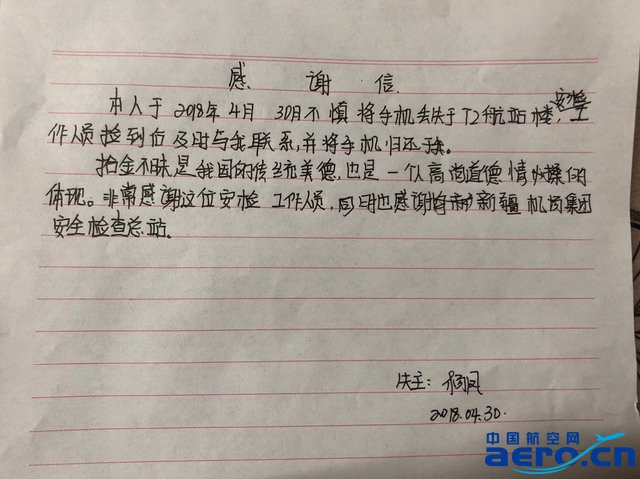 感 谢 信
本人于2018年4月30日不慎将手机丢失于T2航站楼,安检工
作人员捡到后及时与我联系,并将手机归还于我。
拾金不昧是我国的传统美德,也是一个人高尚道德情操的
体现。非常感谢这位安检工作人员,同时也感谢新疆机场集团
安全检查总站。
失主:杨凤
2018.04.30.
中国航空网
aero.cn